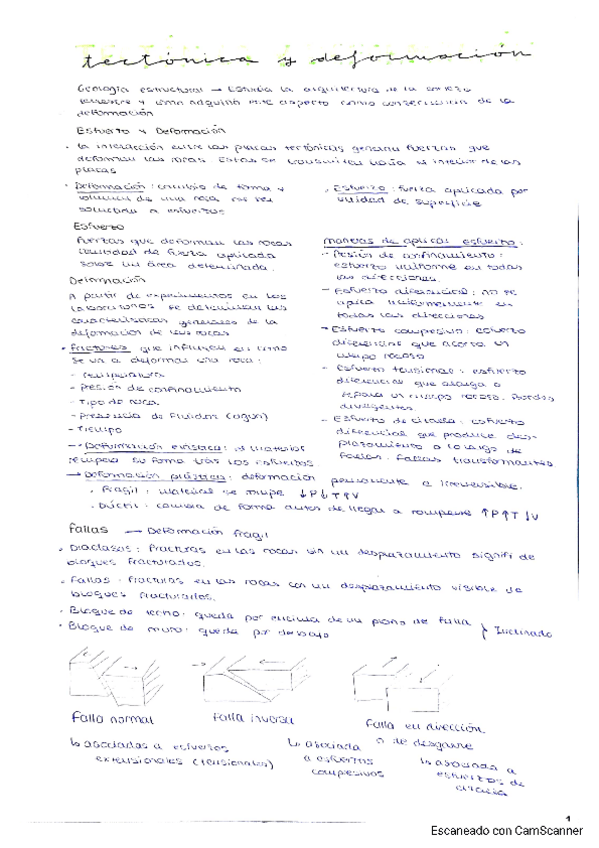 tectónica y deformación
Geología estructural → Estudia la arquitectura de la corteza
terrestre y cómo adquirió este aspecto como consecuencia de la
deformación
Esfuerzo y Deformación
• La interacción entre las placas tectónicas genera fuerzas que
deforman las rocas. Estas se transmiten hacia el interior de las
placas
• Deformación: cambio de forma y
volumen de una roca
sometida a esfuerzos
• Esfuerzo: fuerza aplicada por
unidad de superficie
Esfuerzo
Fuerzas que deforman las rocas
cantidad de fuerza aplicada
sobre un área determinada.
Deformación
A partir de experimentos en los
laboratorios se determinan las
características generales de la
deformación de las rocas
• Factores que influyen en cómo
se va a deformar una roca:
- Temperatura
- Presión de confinamiento
- Tipo de roca
- Presencia de fluidos (agua)
- Tiempo
maneras de aplicar esfuerzo:
- Presión de confinamiento:
esfuerzo uniforme en todas
las direcciones.
- Esfuerzo diferencial: no se
aplica uniformemente en
todas las direcciones
- Esfuerzo compresivo: esfuerzo
diferencial que acorta un
cuerpo rocoso
- Esfuerzo tensional: esfuerzo
diferencial que alarga o
separa un cuerpo rocoso. Bordes
divergentes.
- Esfuerzo de cizalla: esfuerzo
diferencial que produce des-
plazamiento a lo largo de
fallas. Fallas transformantes
→ Deformación elástica: el material
recupera su forma tras los esfuerzos
→ Deformación plástica: deformación permanente e irreversible.
• Frágil: material se rompe ↓P ↓T ↑V
• Dúctil: cambia de forma antes de llegar a romperse ↑P ↑T ↓V
Fallas → Deformación frágil
• Diaclasas: Fracturas en las rocas sin un desplazamiento signifi de
bloques fracturados.
• Fallas: fracturas en las rocas con un desplazamiento visible de
bloques fracturados.
• Bloque de techo: queda por encima de un plano de falla
• Bloque de muro: queda por debajo } Inclinado
Falla normal
Falla inversa
Falla en dirección
o de desgarre
↳ asociadas a esfuerzos
extensionales (tensionales)
↳ asociada
a esfuerzos
compresivos
↳ asociadas a
esfuerzos de
cizalla
1
Escaneado con CamScanner